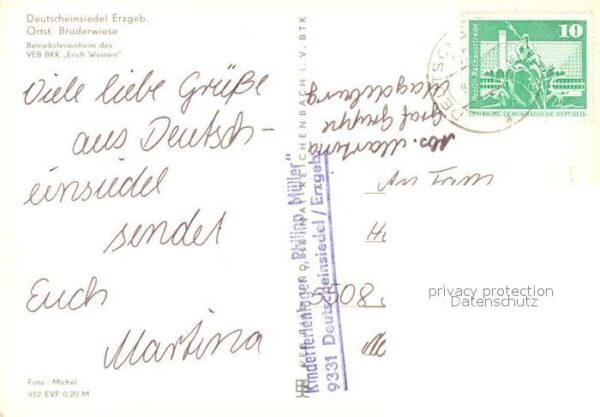 Deutscheinsiedel Erzgeb.
Ortst. Brüderwiese
Betriebsferienheim des
VEB BKK „Erich Weinert"
Viele liebe Grüße
aus Deutsch-
einsiedel
sendet
Euch
Martina
Foto: Michel
952 EVP 0,20 M
REICHENBACH i. V. BTK
Kinderferienlager „Philipp Müller"
9331 Deutscheinsiedel / Erzgeb.
Abs. Martina
Graf Gruppe
Magdeburg
10
DEUTSCHE DEMOKRATISCHE REPUBLIK
An
privacy protection
Datenschutz